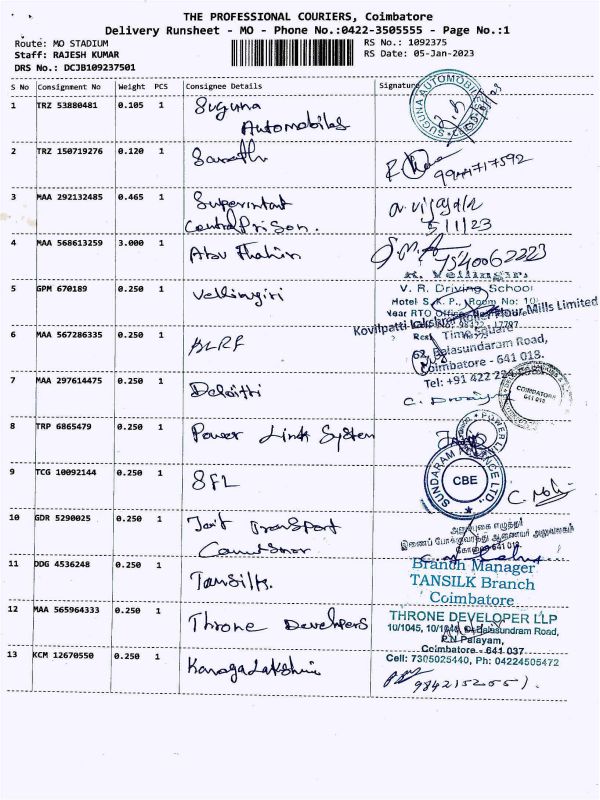 THE PROFESSIONAL COURIERS, Coimbatore
Delivery Runsheet - MO - Phone No.:0422-3505555 - Page No.:1
Route: MO STADIUM
Staff: RAJESH KUMAR
DRS No.: DCJB109237501
RS No.: 1092375
RS Date: 05-Jan-2023
S No Consignment No Weight PCS Consignee Details Signature
1 TRZ 53880481 0.105 1 Suguna
Automobiles
SUGUNA AUTOMOBILES
2 TRZ 150719276 0.120 1
3 MAA 292132485 0.465 1
Central Prison.
5/1/23
4 MAA 568613259 3.000 1 Abu Thahir
7540062223
5 GPM 670189 0.250 1 Vellingiri
V. R. Driving School
Motel S.K.P., Room No: 10
Near RTO
6 MAA 567286335 0.250 1 KLRF
Kovilpatti Lakshmi Roller Flour Mills Limited
Time Square
62, Balasundaram Road,
Coimbatore - 641 018.
Tel: +91 422
7 MAA 297614475 0.250 1
COIMBATORE
641 018
8 TRP 6865479 0.250 1 Power Link System
POWER LINK
9 TCG 10092144 0.250 1 SFL
SUNDARAM FINANCE LTD.
CBE
10 GDR 5290025 0.250 1 Joint Transport
இணைப் போக்குவரத்து ஆணையர் அலுவலகம்
11 DDG 4536248 0.250 1 Tansilk.
Branch Manager
TANSILK Branch
Coimbatore
12 MAA 565964333 0.250 1 Throne Developers
THRONE DEVELOPER LLP
10/1045, Balasundram Road,
P.N Palayam,
Coimbatore - 641 037
Cell: 7305025440, Ph: 04224505472
13 KCM 12670550 0.250 1 Kanagalakshmi